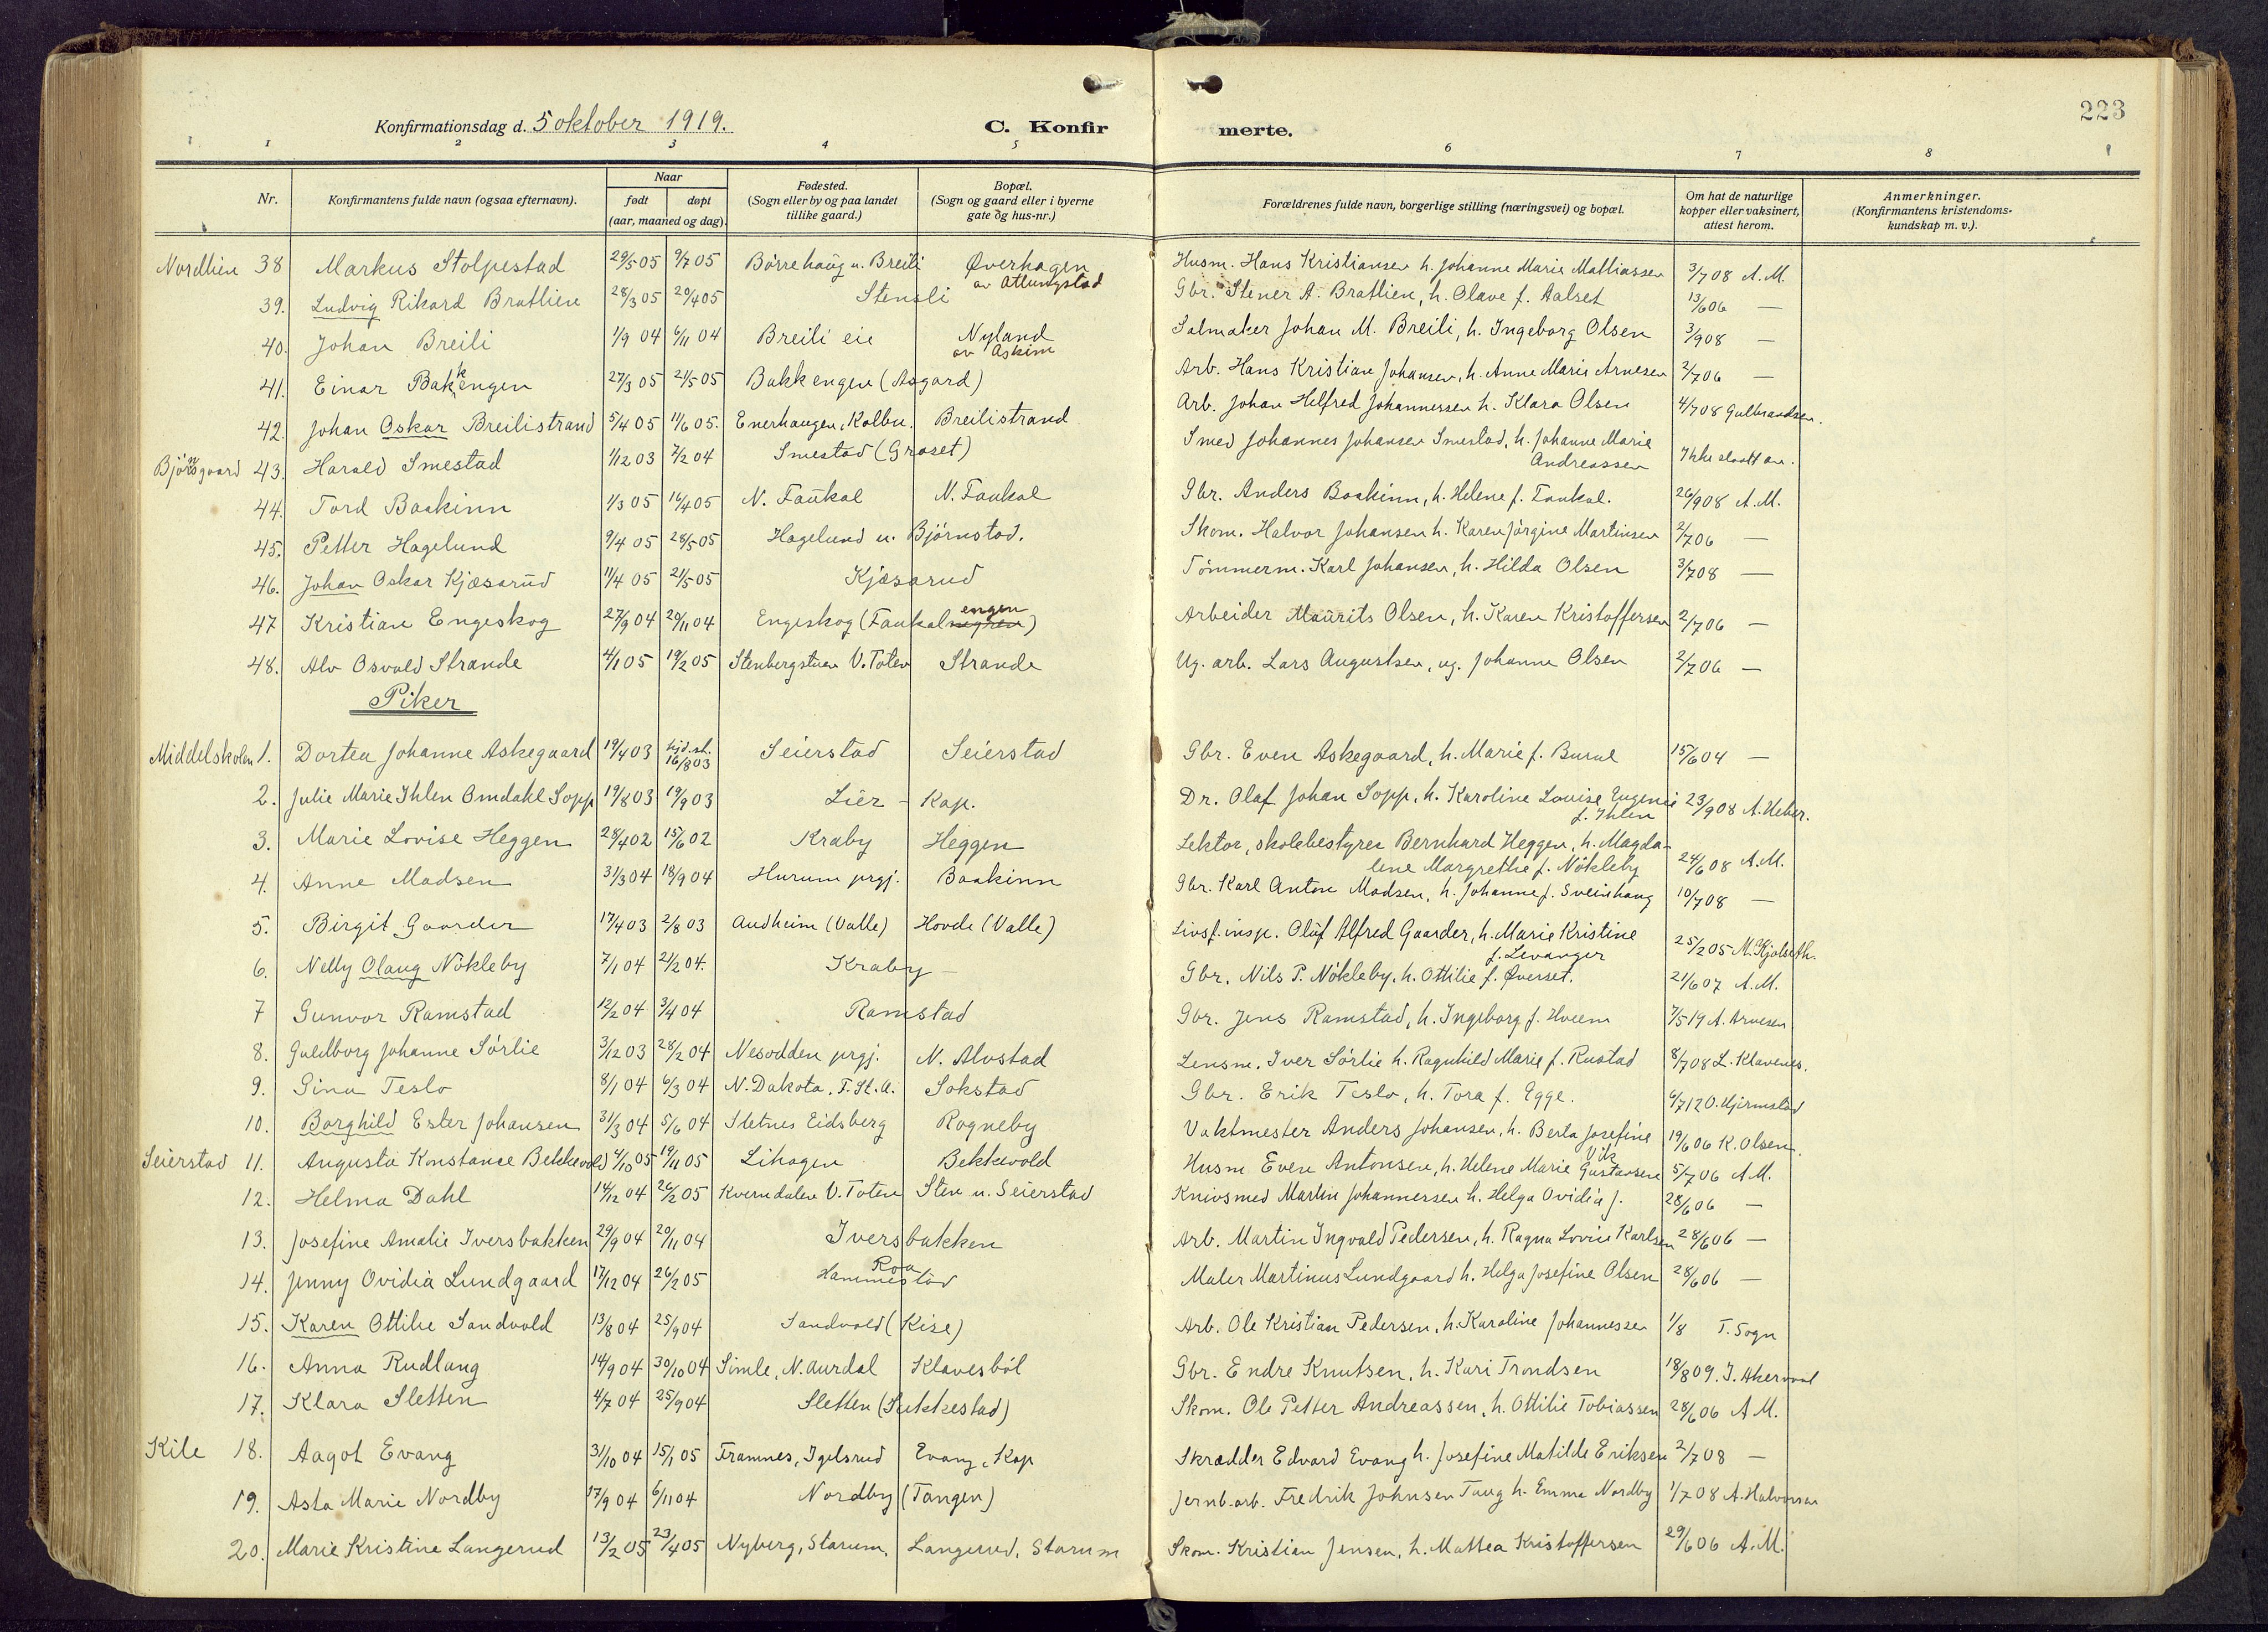 223
Konfirmationsdag d. 5 oktober 1919. C. Konfir merte.
1 2 3 4 5 6 7 8
Nr. Konfirmantens fulde navn (ogsaa efternavn). Naar født døpt (aar, maaned og dag). Fødested. (Sogn eller by og paa landet tillike gaard.) Bopæl. (Sogn og gaard eller i byerne gate og hus-nr.) Forældrenes fulde navn, borgerlige stilling (næringsvei) og bopæl. Om hat de naturlige kopper eller vaksinert, attest herom. Anmerkninger. (Konfirmantens kristendoms-kundskap m. v.).
Nordlien 38 Markus Stolpestad 29/5 05 9/7 05 Børrehaug u. Breili Øverhagen av Atlungstad Husm. Hans Kristiansen h. Johanne Marie Mathiassen 3/7 08 A.M.
39. Ludvig Rikard Bratlien 28/3 05 20/4 05 Stensli Gbr. Stener A. Bratlien, h. Olave f. Aalset 13/6 06 —
40. Johan Breili 1/9 04 6/11 04 Breili eie Nyland av Askim Salmaker Johan M. Breili, h. Ingeborg Olsen 3/9 08 —
41. Einar Bakkengen 27/3 05 21/5 05 Bakkengen (Asgard) Arb. Hans Kristian Johansen, h. Anne Marie Arnesen 2/7 06 —
42. Johan Oskar Breilistrand 5/4 05 11/6 05. Enerhaugen, Kolbu. Breilistrand Arb. Johan Helfred Johannessen h. Klara Olsen 4/7 08 Gulbrandsen.
Bjørnsgaard 43. Harald Smestad 1/12 03 7/2 04 Smestad (Graset) Smed Johannes Johansen Smestad, h. Johanne Marie Andreassen Ikke slaatt an.
44. Tord Baakinn 1/3 05 16/4 05 N. Faukal N. Faukal Gbr. Anders Baakinn, h. Helene f. Faukal. 26/9 08 A.M.
45. Petter Hagelund 9/4 05 28/5 05 Hagelund u. Bjørnstad. Skom. Halvor Johansen h. Karen Jørgine Martinsen 2/7 06 —
46. Johan Oskar Kjæsarud 11/4 05 21/5 05 Kjæsarud Tømmerm. Karl Johansen, h. Hilda Olsen 3/7 08 —
47 Kristian Engeskog 27/9 04 20/11 04 Engeskog (Faukalengen) Arbeider Maurits Olsen, h. Karen Kristoffersen 2/7 06 —
48. Alv Osvald Strande 4/1 05 19/2 05 Stenbergstuen V. Toten Strande Ug. arb. Lars Augustsen, ug. Johanne Olsen 2/7 06 —
Piker
Middelskolen 1. Dortea Johanne Askegaard 19/4 03 hjd. st. 16/8 03 Seierstad Seierstad Gbr. Even Askegaard, h. Marie f. Burul 15/6 04 —
2. Julie Marie Ihlen Omdahl Sopp 19/8 03 19/9 03 Lier - Kap. Dr. Olaf Johan Sopp, h. Karoline Louise Eugenie f. Ihlen 23/9 08
3. Marie Lovise Heggen 28/4 02 15/6 02 Kraby Heggen Lektor, skolebestyrer Bernhard Heggen, h. Magdalene Margrethe f. Nøkleby 24/6 08 A.M.
4. Anne Madsen 31/3 04 18/9 04 Hurum prgj. Baakinn Gbr. Karl Anton Madsen, h. Johanne f. Sveinhaug 10/7 08 —
5. Birgit Gaarder 17/4 03 2/8 03 Audheim (Valle) Hovde (Valle) Livsf. insp. Oluf Alfred Gaarder, h. Marie Kristine f. Levanger 25/2 05 M. Kjølseth.
6. Nelly Olaug Nøkleby 7/1 04 21/2 04. Kraby — Gbr. Nils P. Nøkleby, h. Ottilie f. Øverset. 21/6 07 A.M.
7 Gunvor Ramstad 12/2 04 3/4 04 Ramstad Gbr. Jens Ramstad, h. Ingeborg f. Hveem 7/5 19 A. Arnesen
8. Guldborg Johanne Sørlie 3/12 03 28/2 04 Nesodden prgj. N. Alvstad Lensm. Iver Sørlie h. Ragnhild Marie f. Rustad 8/7 08 L. Klavenes.
9. Gina Teslo 8/1 04 6/3 04 N. Dakota, F. St. A. Sokstad Gbr. Erik Teslo, h. Tora f. Egge. 6/7 12 O. Hjermstad
10. Borghild Ester Johansen 31/3 04 5/6 04 Sletnes Eidsberg Rogneby Vaktmester Anders Johansen, h. Berta Josefine Vik 19/6 06 K. Olsen.
Seierstad 11. Augusta Konstance Bekkevold 4/10 05 19/11 05 Lihagen Bekkevold Husm Even Antonsen, h. Helene Marie Gustavsen 5/7 06 A.M.
12. Helma Dahl 14/12 04 26/2 05 Kverndalen V. Toten Sten u. Seierstad Knivsmed Martin Johannessen h. Helga Ovidia f. 28/6 06 —
13. Josefine Amalie Iversbakken 29/9 04 20/11 04 Iversbakken Arb. Martin Ingvald Pedersen, h. Ragna Lovise Karlsen 28/6 06 —
14. Jenny Ovidia Lundgaard 17/12 04 26/2 05 Roa Hammestad Maler Martinus Lundgaard h. Helga Josefine Olsen 28/6 06 —
15. Karen Ottilie Sandvold 13/8 04 25/9 04 Sandvold (Kise) Arb. Ole Kristian Pedersen, h. Karoline Johannessen 1/8 T. Sogn
16. Anna Rudlang 14/9 04 30/10 04 Simle, N. Aurdal Klavesbøl Gbr. Endre Knutsen, h. Kari Trondsen 18/8 09. J. Akervool
17. Klara Sletten 4/7 04 25/9 04 Sletten (Sukkestad) Skom. Ole Petter Andreassen, h. Ottilie Tobiassen 28/6 06 A M.
Kile 18. Aagot Evang 31/10 04 15/1 05 Framnes, Igelsrud Evang, Kap Skrædder Edvard Evang h. Josefine Matilde Eriksen 2/7 08 —
19. Asta Marie Nordby 17/9 04 6/11 04 Nordby (Tangen) Jernb. arb. Fredrik Johnsen Taug h. Emma Nordby 1/7 08 A. Halvorsen
20. Marie Kristine Langerud 13/2 05 23/4 05 Nyberg, Starum, Langerud, Starum Skom. Kristian Jensen, h. Mattea Kristoffersen 29/6 06 A.M.